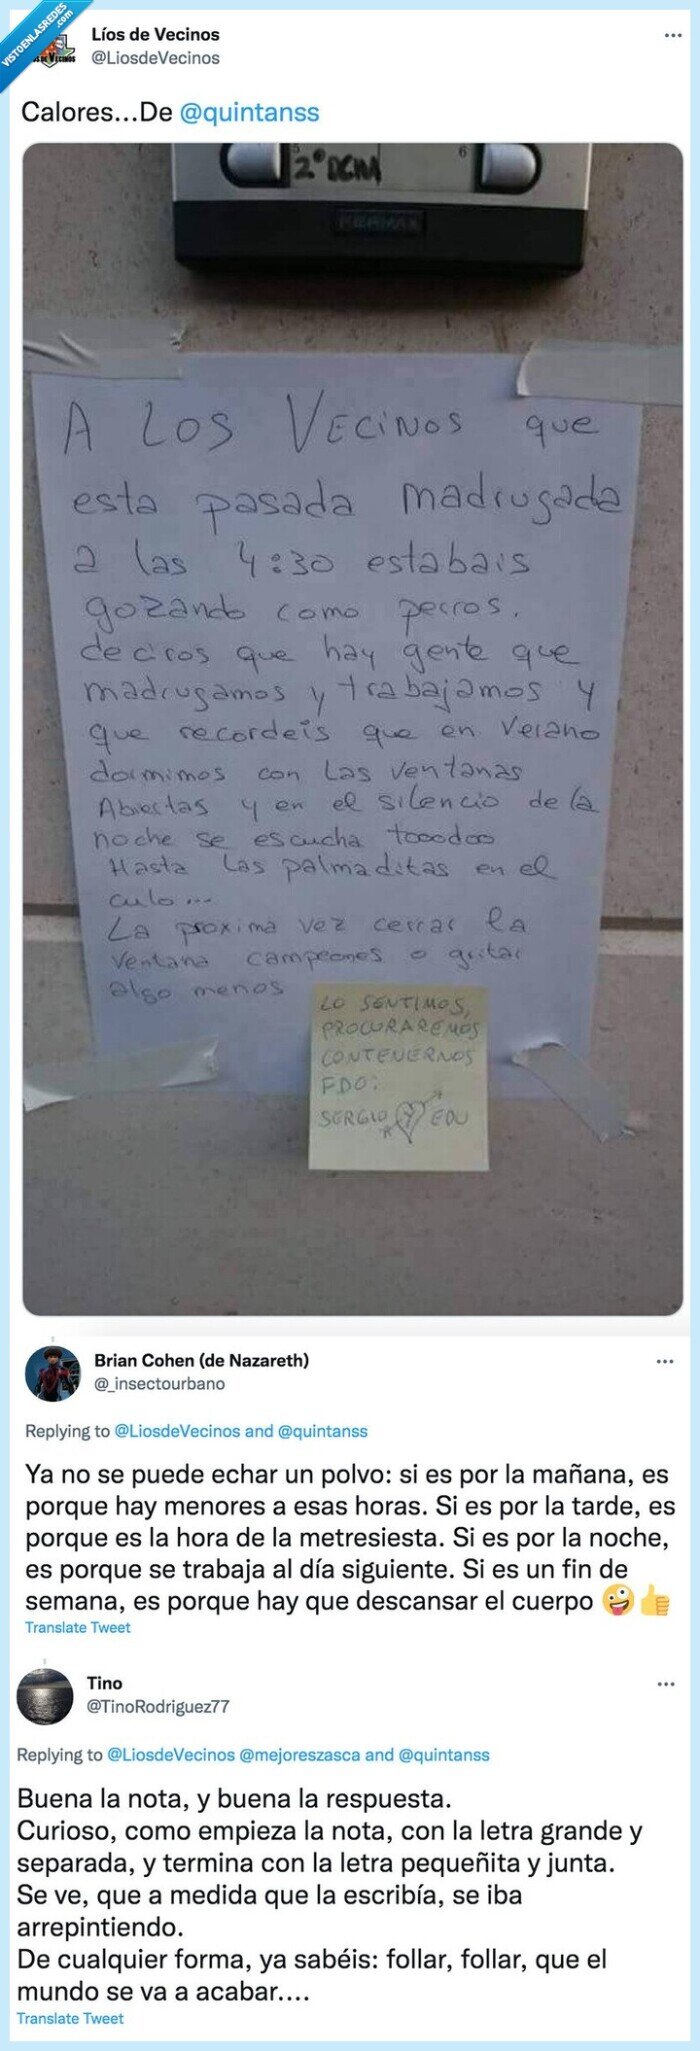 VISTOENLASREDES
.com
Líos de Vecinos
@LiosdeVecinos
Calores...De @quintanss
5 2º DCHA 6
FERMAX
A LOS VECINOS que
esta pasada madrugada
a las 4:30 estabais
gozando como perros.
deciros que hay gente que
madrugamos y trabajamos y
que recordeis que en Verano
dormimos con las ventanas
Abiertas y en el silencio de la
noche se escucha tooodoo
Hasta las palmaditas en el
culo...
La proxima vez cerrar la
ventana campeones o gritar
algo menos
LO SENTIMOS,
PROCURAREMOS
CONTENERNOS
FDO:
SERGIO Y EDU
Brian Cohen (de Nazareth)
@_insectourbano
Replying to @LiosdeVecinos and @quintanss
Ya no se puede echar un polvo: si es por la mañana, es
porque hay menores a esas horas. Si es por la tarde, es
porque es la hora de la metresiesta. Si es por la noche,
es porque se trabaja al día siguiente. Si es un fin de
semana, es porque hay que descansar el cuerpo 🤪👍
Translate Tweet
Tino
@TinoRodriguez77
Replying to @LiosdeVecinos @mejoreszasca and @quintanss
Buena la nota, y buena la respuesta.
Curioso, como empieza la nota, con la letra grande y
separada, y termina con la letra pequeñita y junta.
Se ve, que a medida que la escribía, se iba
arrepintiendo.
De cualquier forma, ya sabéis: follar, follar, que el
mundo se va a acabar....
Translate Tweet